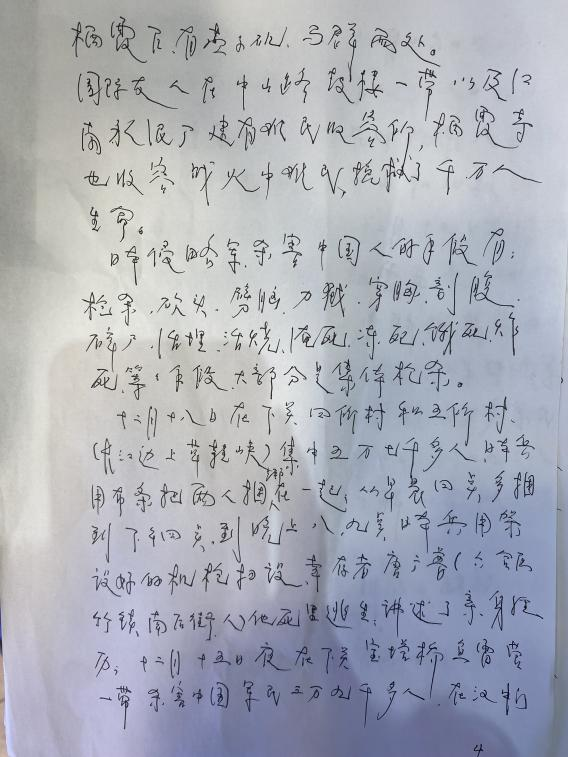 栖霞区,有燕子矶、马群两处。
国际友人在中山路鼓楼一带以及江
南水泥厂建有难民收容所,栖霞寺
也收容战火中难民,抢救了千万人
生命。
日本侵略军杀害中国人的手段有:
枪杀、砍头、劈脑、刀戳、穿胸、剖腹、
碎尸、活埋、活烧、淹死、冻死、饿死、炸
死等等手段,大部分是集体枪杀。
十二月十八日在下关四所村和五所村、
(长江边上草鞋峡)集中五万七千多人,日本兵
用布条把两人绑捆在一起,从早晨四点多捆
到下午四点,到晚上八、九点日本兵用架
设好的机枪扫设,幸存者唐广普(六合
竹镇南后街人)他死里逃生,讲述了亲身经
历;十二月十五日夜在下关宝塔桥鱼雷营
一带杀害中国军民三万九千多人,在汉
4